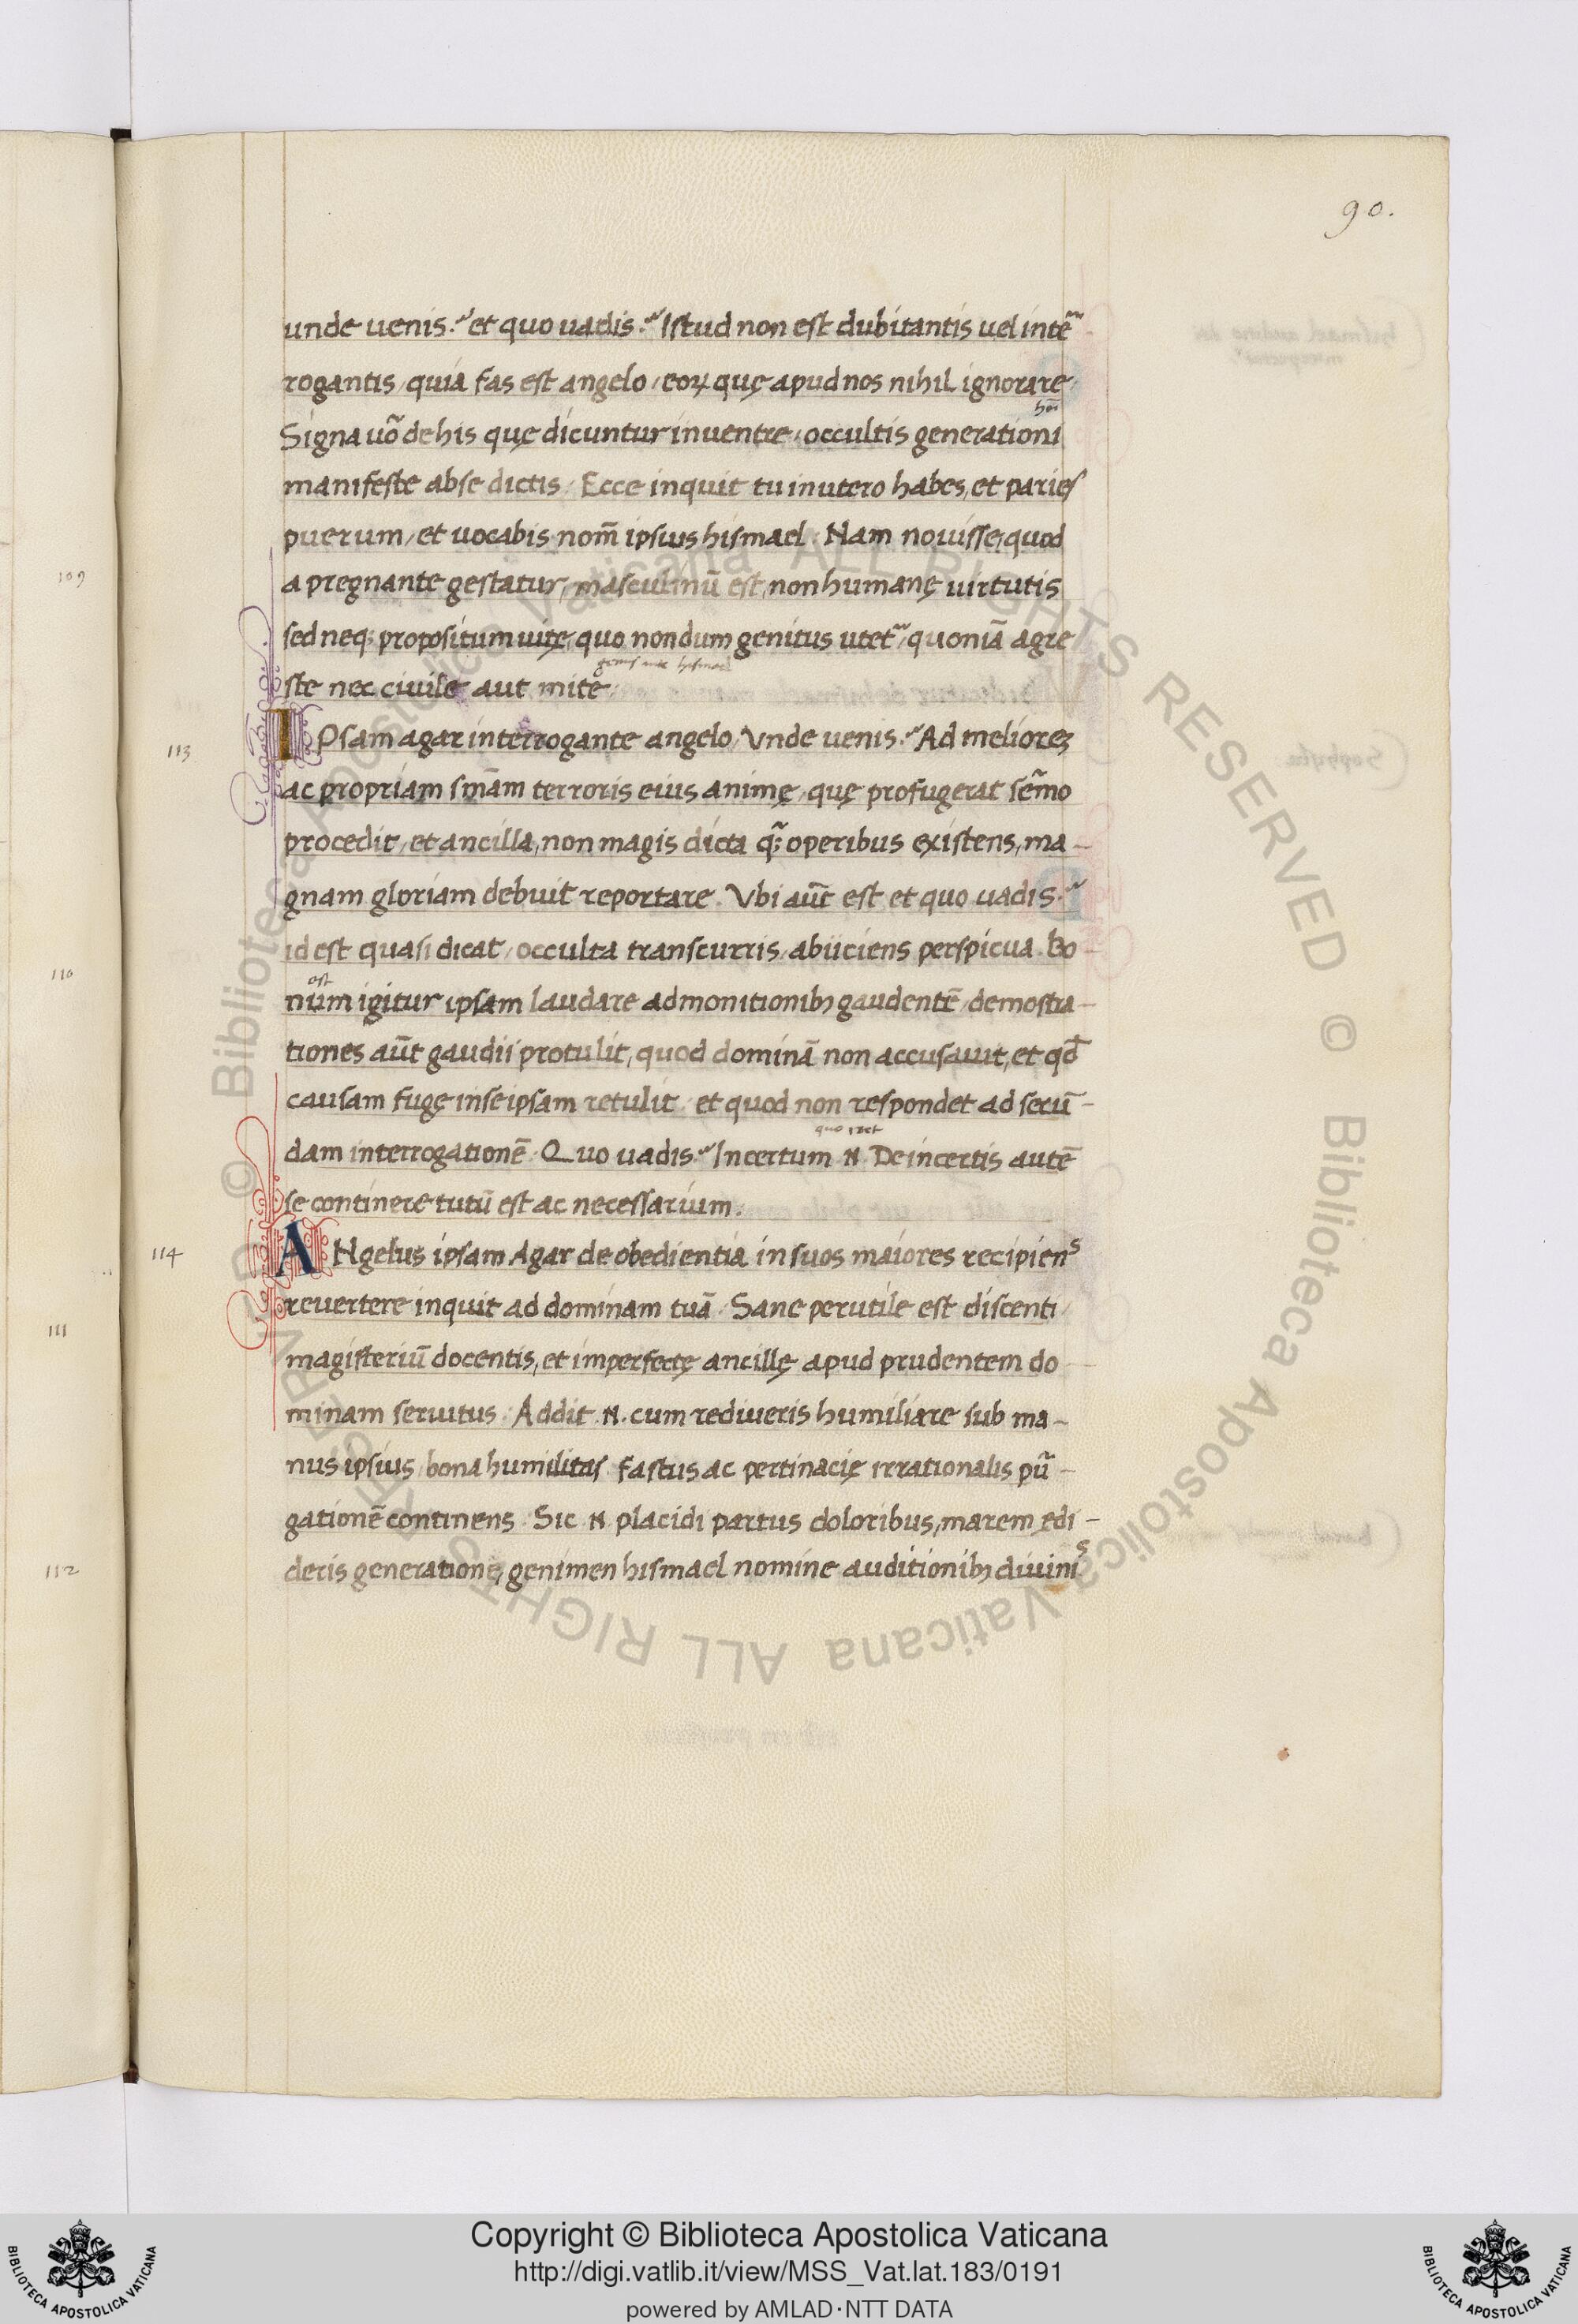 90.
unde uenis. et quo uadis. Istud non est dubitantis uel inte᷑
rogantis, quia fas est angelo, eoꝝ quę apud nos nihil ignorare
hōi
Signa uõ de his quę dicuntur in uentre, occultis generationi
manifeste ab se dictis. Ecce inquit tu in utero habes, et paries
puerum, et uocabis nom̃ ipsius hismael. Nam nouisse, quod
109
a pregnante gestatur, masculinũ est, non humanę uirtutis
sed neq; propositum uitę, quo nondum genitus utet᷑, quoniã agre
ste nec ciuile aut mite
113
IPsam agar interrogante angelo, Vnde uenis. Ad meliorez
ac propriam sm̃am terroris eius animę, quę profugerat sẽmo
procedit, et ancilla, non magis dicta q̃; operibus existens, ma-
gnam gloriam debuit reportare. Vbi aũt est et quo uadis.
110
id est quasi dicat, occulta transcurris, abiiciens perspicua. Bo-
est
num igitur ipsam laudare admonitionibꝫ gaudentẽ, demostra-
tiones aũt gaudii protulit, quod dominã non accusauit, et qd̃
causam fugę in se ipsam retulit. et quod non respondet ad secũ-
dam interrogationẽ. Quo uadis. Incertum .N. De incertis autẽ
se continere tutũ est ac necessarium.
114
ANgelus ipsam Agar de obedientia in suos maiores recipiens
reuertere inquit ad dominam tuã. Sane perutile est discenti
111
magisteriũ docentis, et imperfectę ancillę apud prudentem do
minam seruitus. Addit .N. cum rediueris humiliare sub ma-
nus ipsius, bona humilitas fastus ac pertinacię irrationalis pũ-
gationẽ continens. Sic .N. placidi partus doloribus, marem ędi-
112
deris generatione, genimen hismael nomine auditionibꝫ diuinis
Copyright © Biblioteca Apostolica Vaticana
http://digi.vatlib.it/view/MSS_Vat.lat.183/0191
powered by AMLAD·NTT DATA
BIBLIOTECA APOSTOLICA VATICANA
BIBLIOTECA APOSTOLICA VATICANA